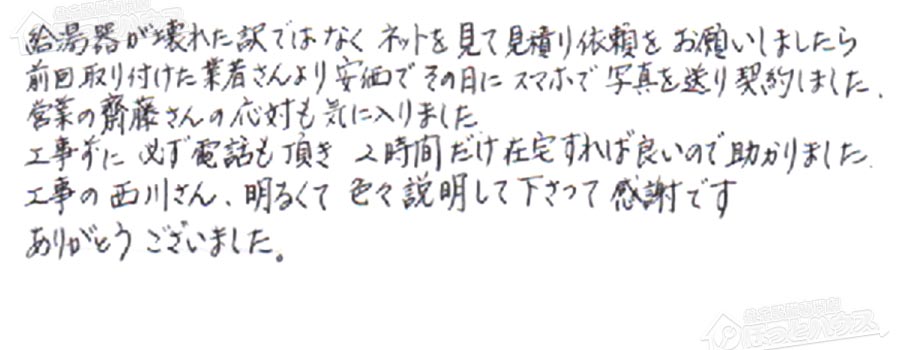 給湯器が壊れた訳ではなく ネットを見て見積り依頼をお願いしましたら
前回取り付けた業者さんより安価でその日にスマホで写真を送り契約しました.
営業の齋藤さんの応対も気に入りました
工事前に 必ず電話も頂き 2時間だけ在宅すれば良いので助かりました.
工事の西川さん、明るくて 色々説明して下さって感謝です
ありがとうございました。
ほっとハウス